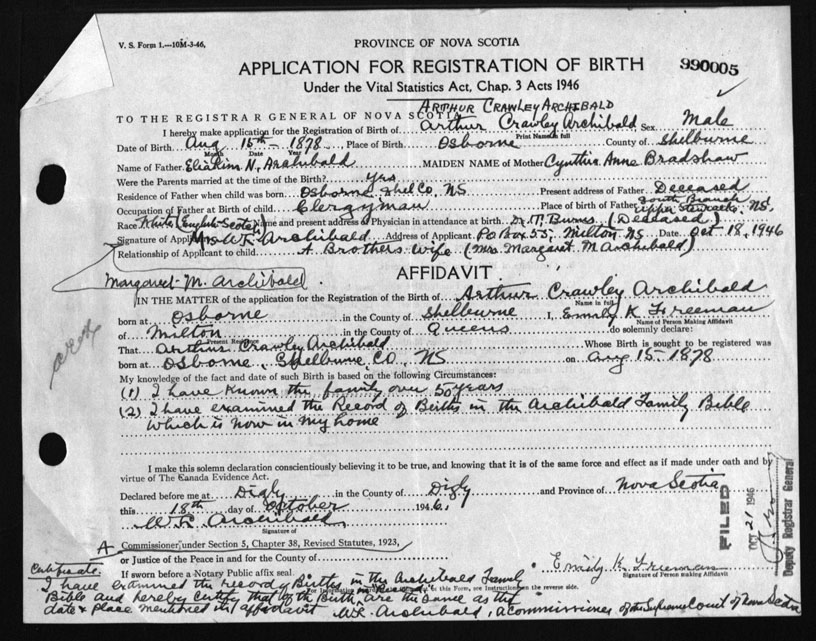 V. S. Form 1.—10M-3-46,
PROVINCE OF NOVA SCOTIA
APPLICATION FOR REGISTRATION OF BIRTH
990005
Under the Vital Statistics Act, Chap. 3 Acts 1946
ARTHUR CRAWLEY ARCHIBALD
TO THE REGISTRAR GENERAL OF NOVA SCOTIA
I hereby make application for the Registration of Birth of Arthur Crawley Archibald Sex Male
Print Name in full
Date of Birth Aug 15th - 1878 Place of Birth Osborne County of Shelburne
Month Date Year
Name of Father Eliakim N. Archibald MAIDEN NAME of Mother Cynthia Anne Bradshaw
Were the Parents married at the time of the Birth? Yes
Residence of Father when child was born Osborne Shel Co, NS Present address of Father Deceased
Occupation of Father at Birth of child Clergyman Place of birth of Father South Branch Upper Stewiacke, NS.
Race White (English-Scotch) Name and present address of Physician in attendance at birth Dr. T. Burns (Deceased)
Signature of Applicant Mrs W. R. Archibald Address of Applicant PO Box 55, Milton NS Date Oct 18, 1946
Relationship of Applicant to child A Brothers Wife (Mrs. Margaret M Archibald)
Margaret M. Archibald.
AFFIDAVIT
IN THE MATTER of the application for the Registration of Birth of Arthur Crawley Archibald
Name in full
born at Osborne in the County of Shelburne I, Emily K Freeman
Name of Person Making Affidavit
of Milton in the County of Queens do solemnly declare:
Present Residence
That Arthur Crawley Archibald Whose Birth is sought to be registered was
born at Osborne, Shelburne, CO, NS on Aug 15 - 1878
My knowledge of the fact and date of such Birth is based on the following Circumstances:
(1) I have known the family over 50 years
(2) I have examined the Record of Births in the Archibald Family Bible
which is now in my home
I make this solemn declaration conscientiously believing it to be true, and knowing that it is of the same force and effect as if made under oath and by
virtue of The Canada Evidence Act.
Declared before me at Digby in the County of Digby and Province of Nova Scotia
this 18th day of October 1946.
W. R. Archibald
Signature of
A Commissioner, under Section 5, Chapter 38, Revised Statutes, 1923,
or Justice of the Peace in and for the County of
Emily K. Freeman
Signature of Person making Affidavit
If sworn before a Notary Public affix seal
see Instructions on the reverse side.
Certificate
I have examined the record of Births in the Archibald Family
Bible and hereby certify that the Birth are the same as the
date & place mentioned in affidavit W.R. Archibald, a commissioner of the Supreme Court of Nova Scotia
FILED
OCT 21 1946
Deputy Registrar General